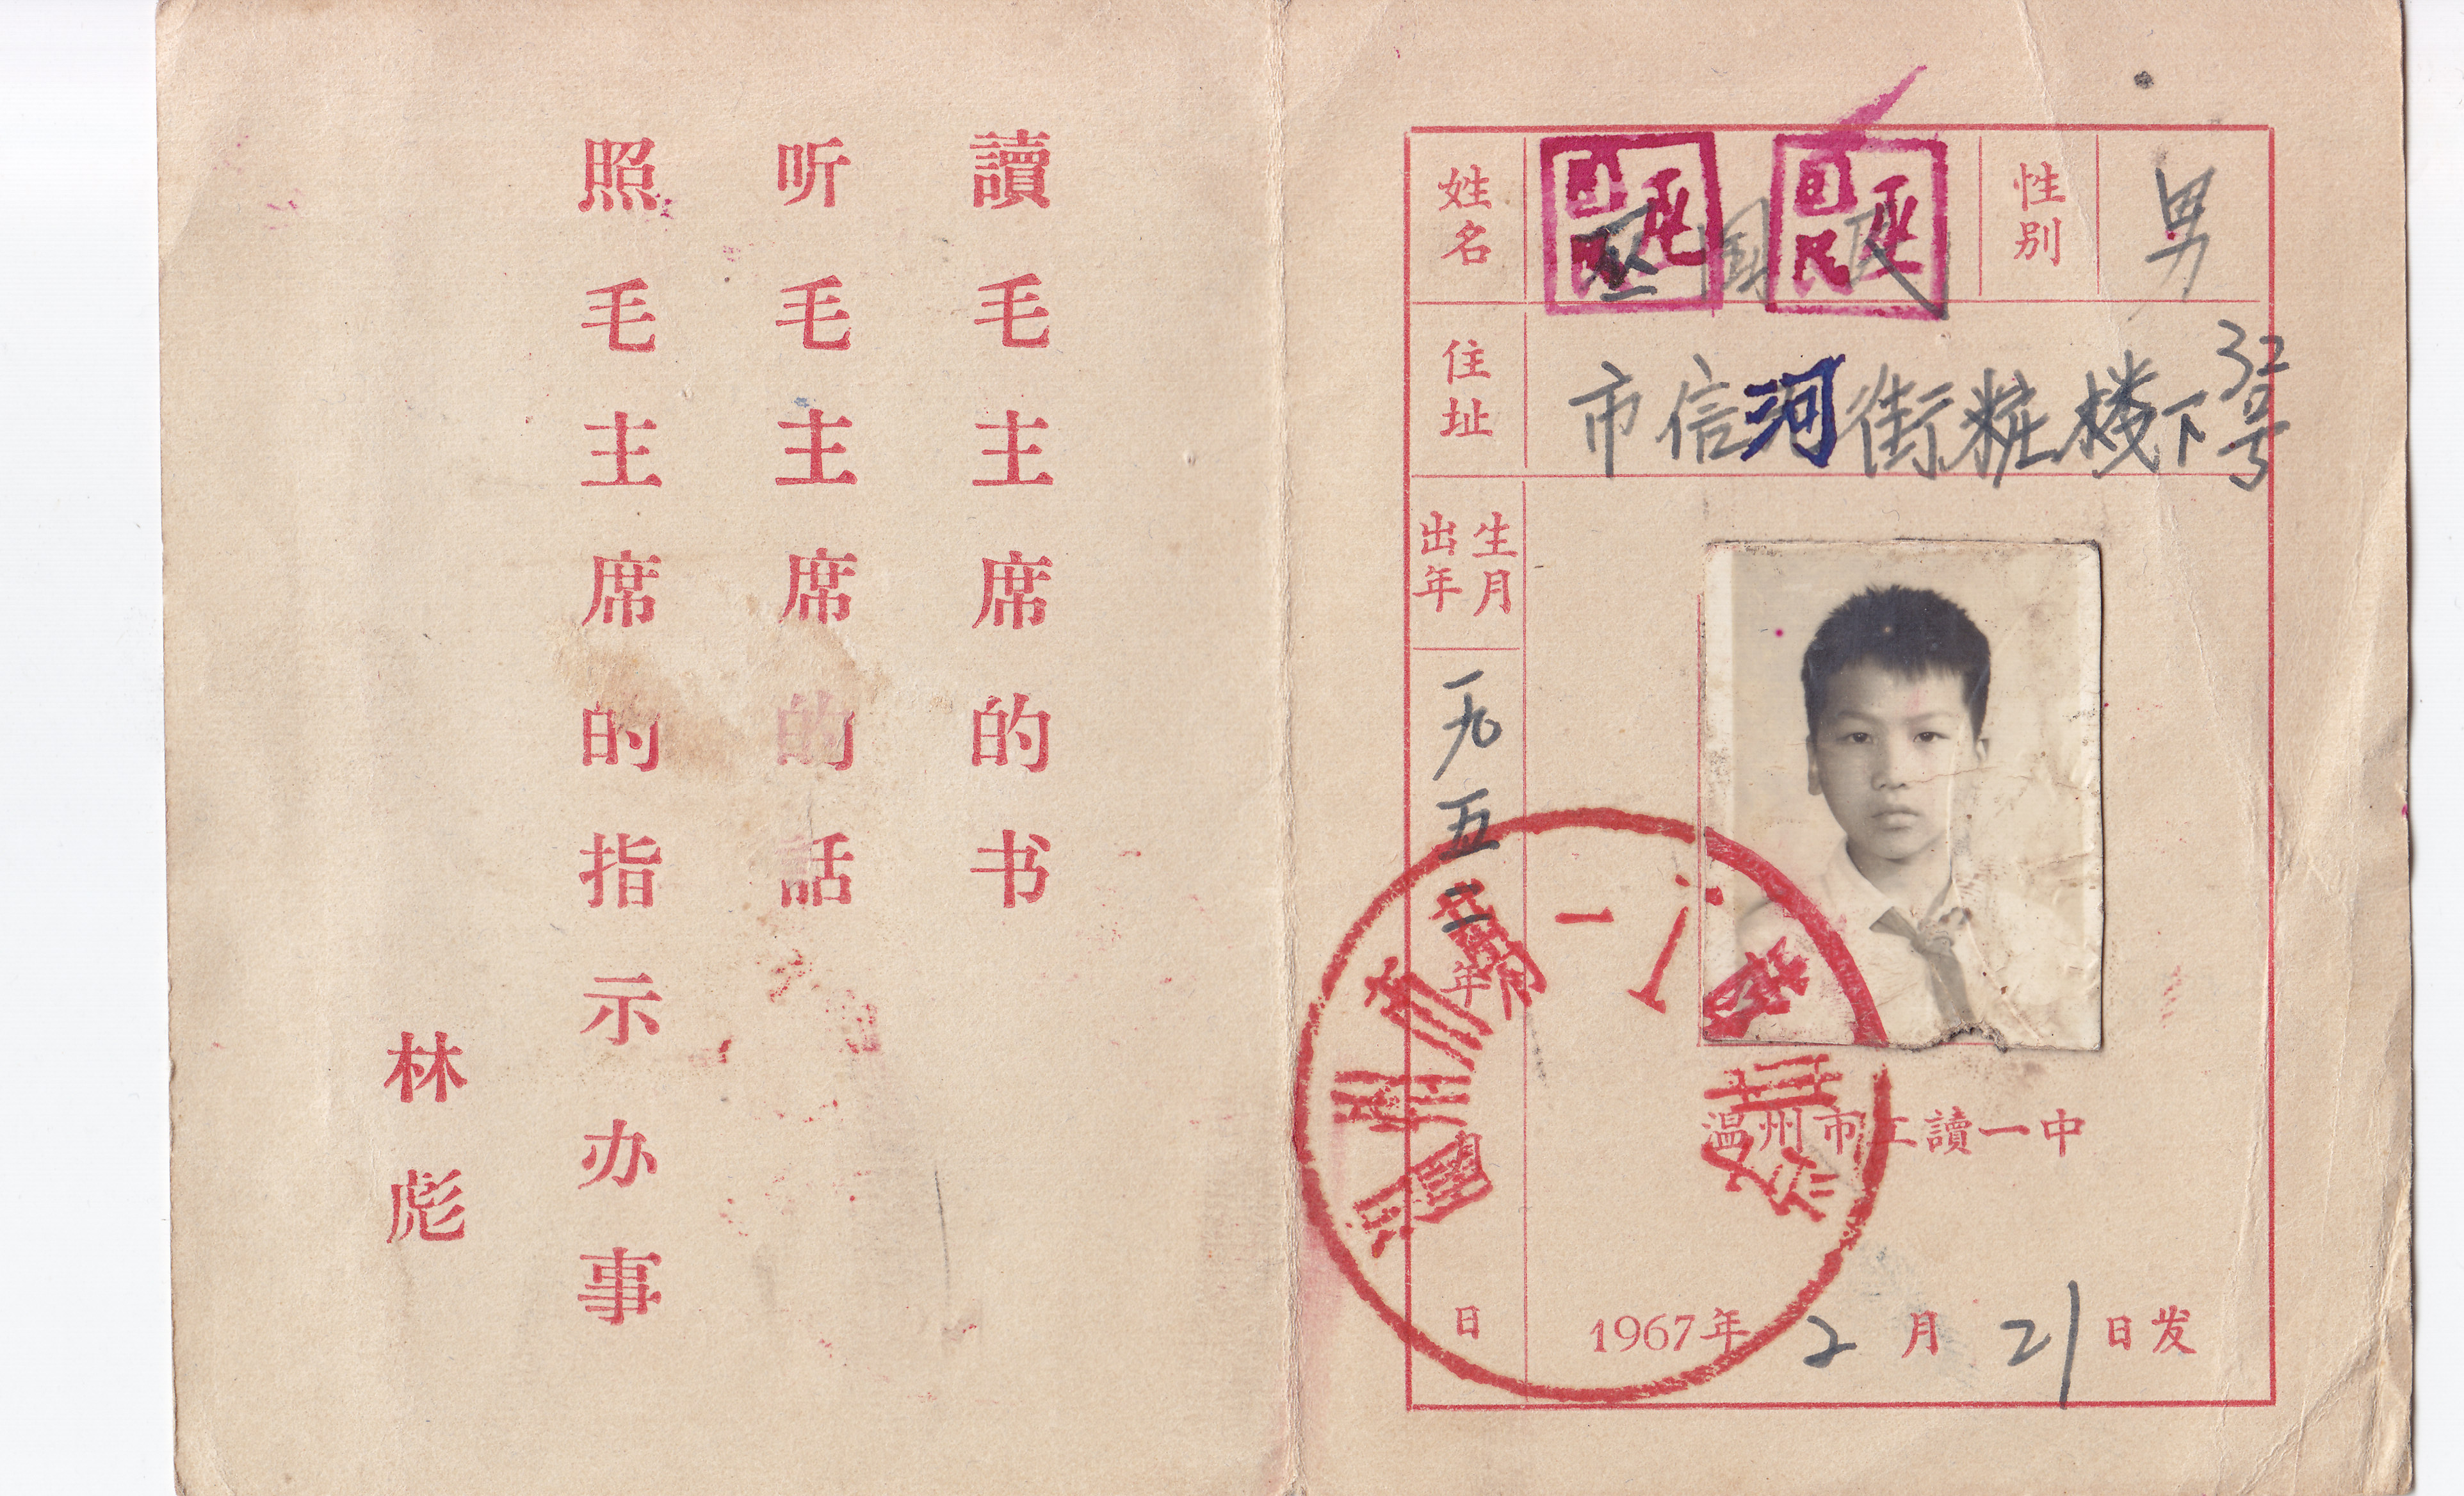 讀毛主席的书
听毛主席的話
照毛主席的指示办事
林彪
姓名 巫国民 性别 男
住址 市信河街粧楼下32号
出生年月
一九五二年 日
温州市工讀一中
1967年2月21日发